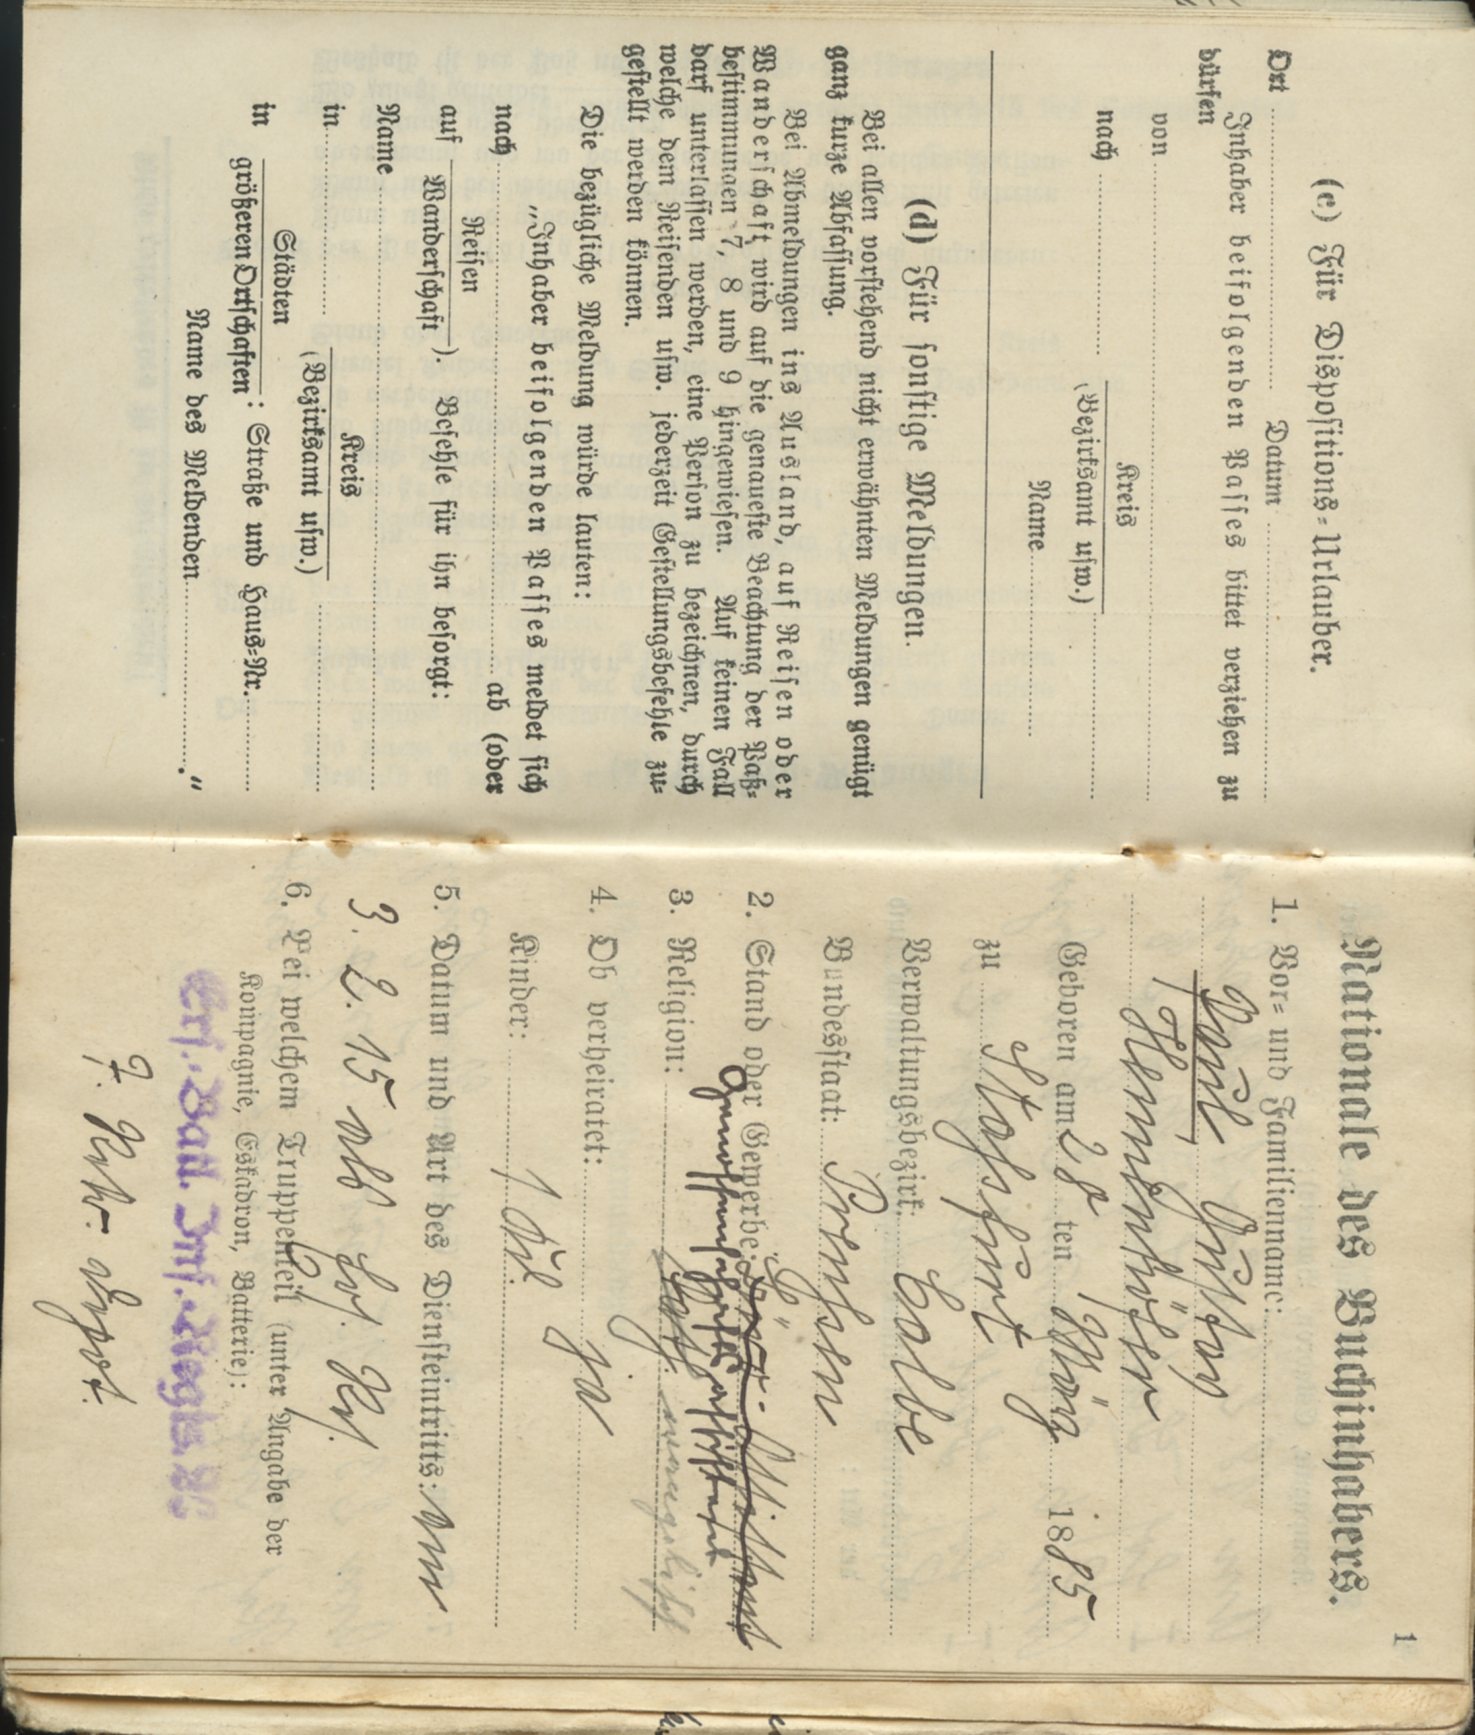 (c) Für Dispositions-Urlauber.
Ort Datum
Inhaber beifolgenden Passes bittet verziehen zu
dürfen
von
nach Kreis
(Bezirksamt usw.)
Name
(d) Für sonstige Meldungen.
Bei allen vorstehend nicht erwähnten Meldungen genügt
ganz kurze Abfassung.
Bei Abmeldungen ins Ausland, auf Reisen oder
Wanderschaft wird auf die genaueste Beachtung der Paß-
bestimmungen 7, 8 und 9 hingewiesen. Auf keinen Fall
darf unterlassen werden, eine Person zu bezeichnen, durch
welche dem Reisenden usw. jederzeit Gestellungsbefehle zu-
gestellt werden können.
Die bezügliche Meldung würde lauten:
„Inhaber beifolgenden Passes meldet sich
nach ab (oder
auf Reisen
Wanderschaft). Befehle für ihn besorgt:
Name
in Kreis
(Bezirksamt usw.)
in Städten
größeren Ortschaften: Straße und Haus-Nr.
Name des Meldenden ."
1
Nationale des Buchinhabers.
1. Vor- und Familienname:
Paul, Gustav
Geboren am 28 ten März 1885
zu Staßfurt
Verwaltungsbezirk: Calbe
Bundesstaat: Preußen
2. Stand oder Gewerbe:
3. Religion: evangelisch
4. Ob verheiratet: ja
Kinder: 1
5. Datum und Art des Diensteintritts: Am
3. 2. 15 als
6. Bei welchem Truppenteil (unter Angabe der
Kompagnie, Eskadron, Batterie):
Ers.-Batl. Inf.-Regts.
Rekr. Depot.